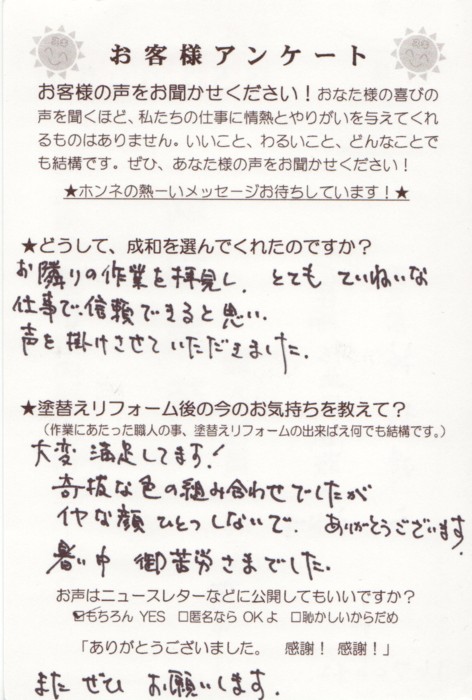 お客様アンケート
お客様の声をお聞かせください！おなた様の喜びの
声を聞くほど、私たちの仕事に情熱とやりがいを与えてくれ
るものはありません。いいこと、わるいこと、どんなことで
も結構です。ぜひ、あなた様の声をお聞かせください！
★ホンネの熱ーいメッセージお待ちしています！★
★どうして、成和を選んでくれたのですか？
お隣りの作業を拝見し、とても ていねいな
仕事で、信頼できると思い、
声を掛けさせていただきました。
★塗替えリフォーム後の今のお気持ちを教えて？
（作業にあたった職人の事、塗替えリフォームの出来ばえ何でも結構です。）
大変 満足してます！
奇抜な色の組み合わせでしたが
イヤな顔ひとつしないで、ありがとうございます
暑い中 御苦労さまでした。
お声はニュースレターなどに公開してもいいですか？
☑もちろん YES □匿名なら OKよ □恥かしいからだめ
「ありがとうございました。 感謝！ 感謝！」
また ぜひ お願いします。